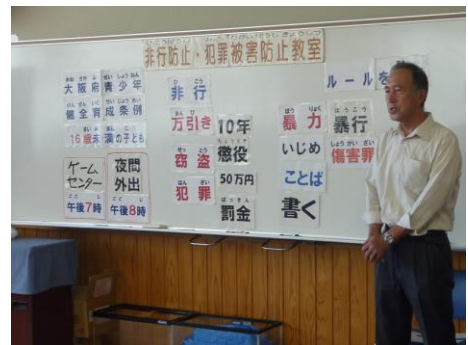 非行防止・犯罪被害防止教室
大阪府青少年
健全育成条例
16歳未満の子ども
ゲーム
センター
午後7時
夜間
外出
午後8時
非行
万引き
窃盗
犯罪
10年
懲役
50万円
罰金
ルールを
暴力
いじめ
ことば
書く
暴行
傷害罪